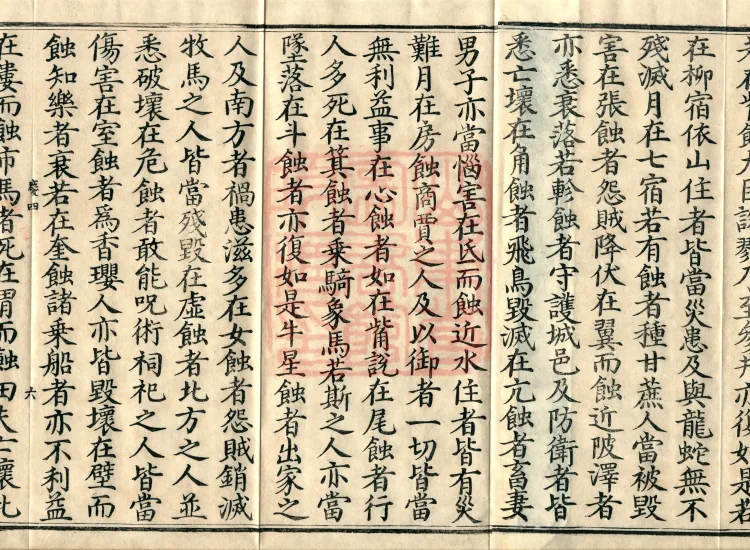 亦復如是若
在柳宿依山住者皆當災患及與龍蛇無不
殘滅月在七宿若有蝕者種甘蔗人當被毀
害在張蝕者怨賊降伏在翼而蝕近陂澤者
亦悉衰落若軫蝕者守護城邑及防衛者皆
悉亡壞在角蝕者飛鳥毀滅在亢蝕者畜妻
男子亦當惱害在氐而蝕近水住者皆有災
難月在房蝕商賈之人及以御者一切皆當
無利益事在心蝕者如在觜說在尾蝕者行
人多死在箕蝕者乘騎象馬若斯之人亦當
墜落在斗蝕者亦復如是牛星蝕者出家之
人及南方者禍患滋多在女蝕者怨賊銷滅
牧馬之人皆當殘毀在虛蝕者北方之人並
悉破壞在危蝕者敢能呪術祠祀之人皆當
傷害在室蝕者爲香瓔人亦皆毀壞在壁而
蝕知樂者衰若在奎蝕諸乘船者亦不利益
四 六
在婁而蝕市馬者死在胃而蝕田夫亡壞此